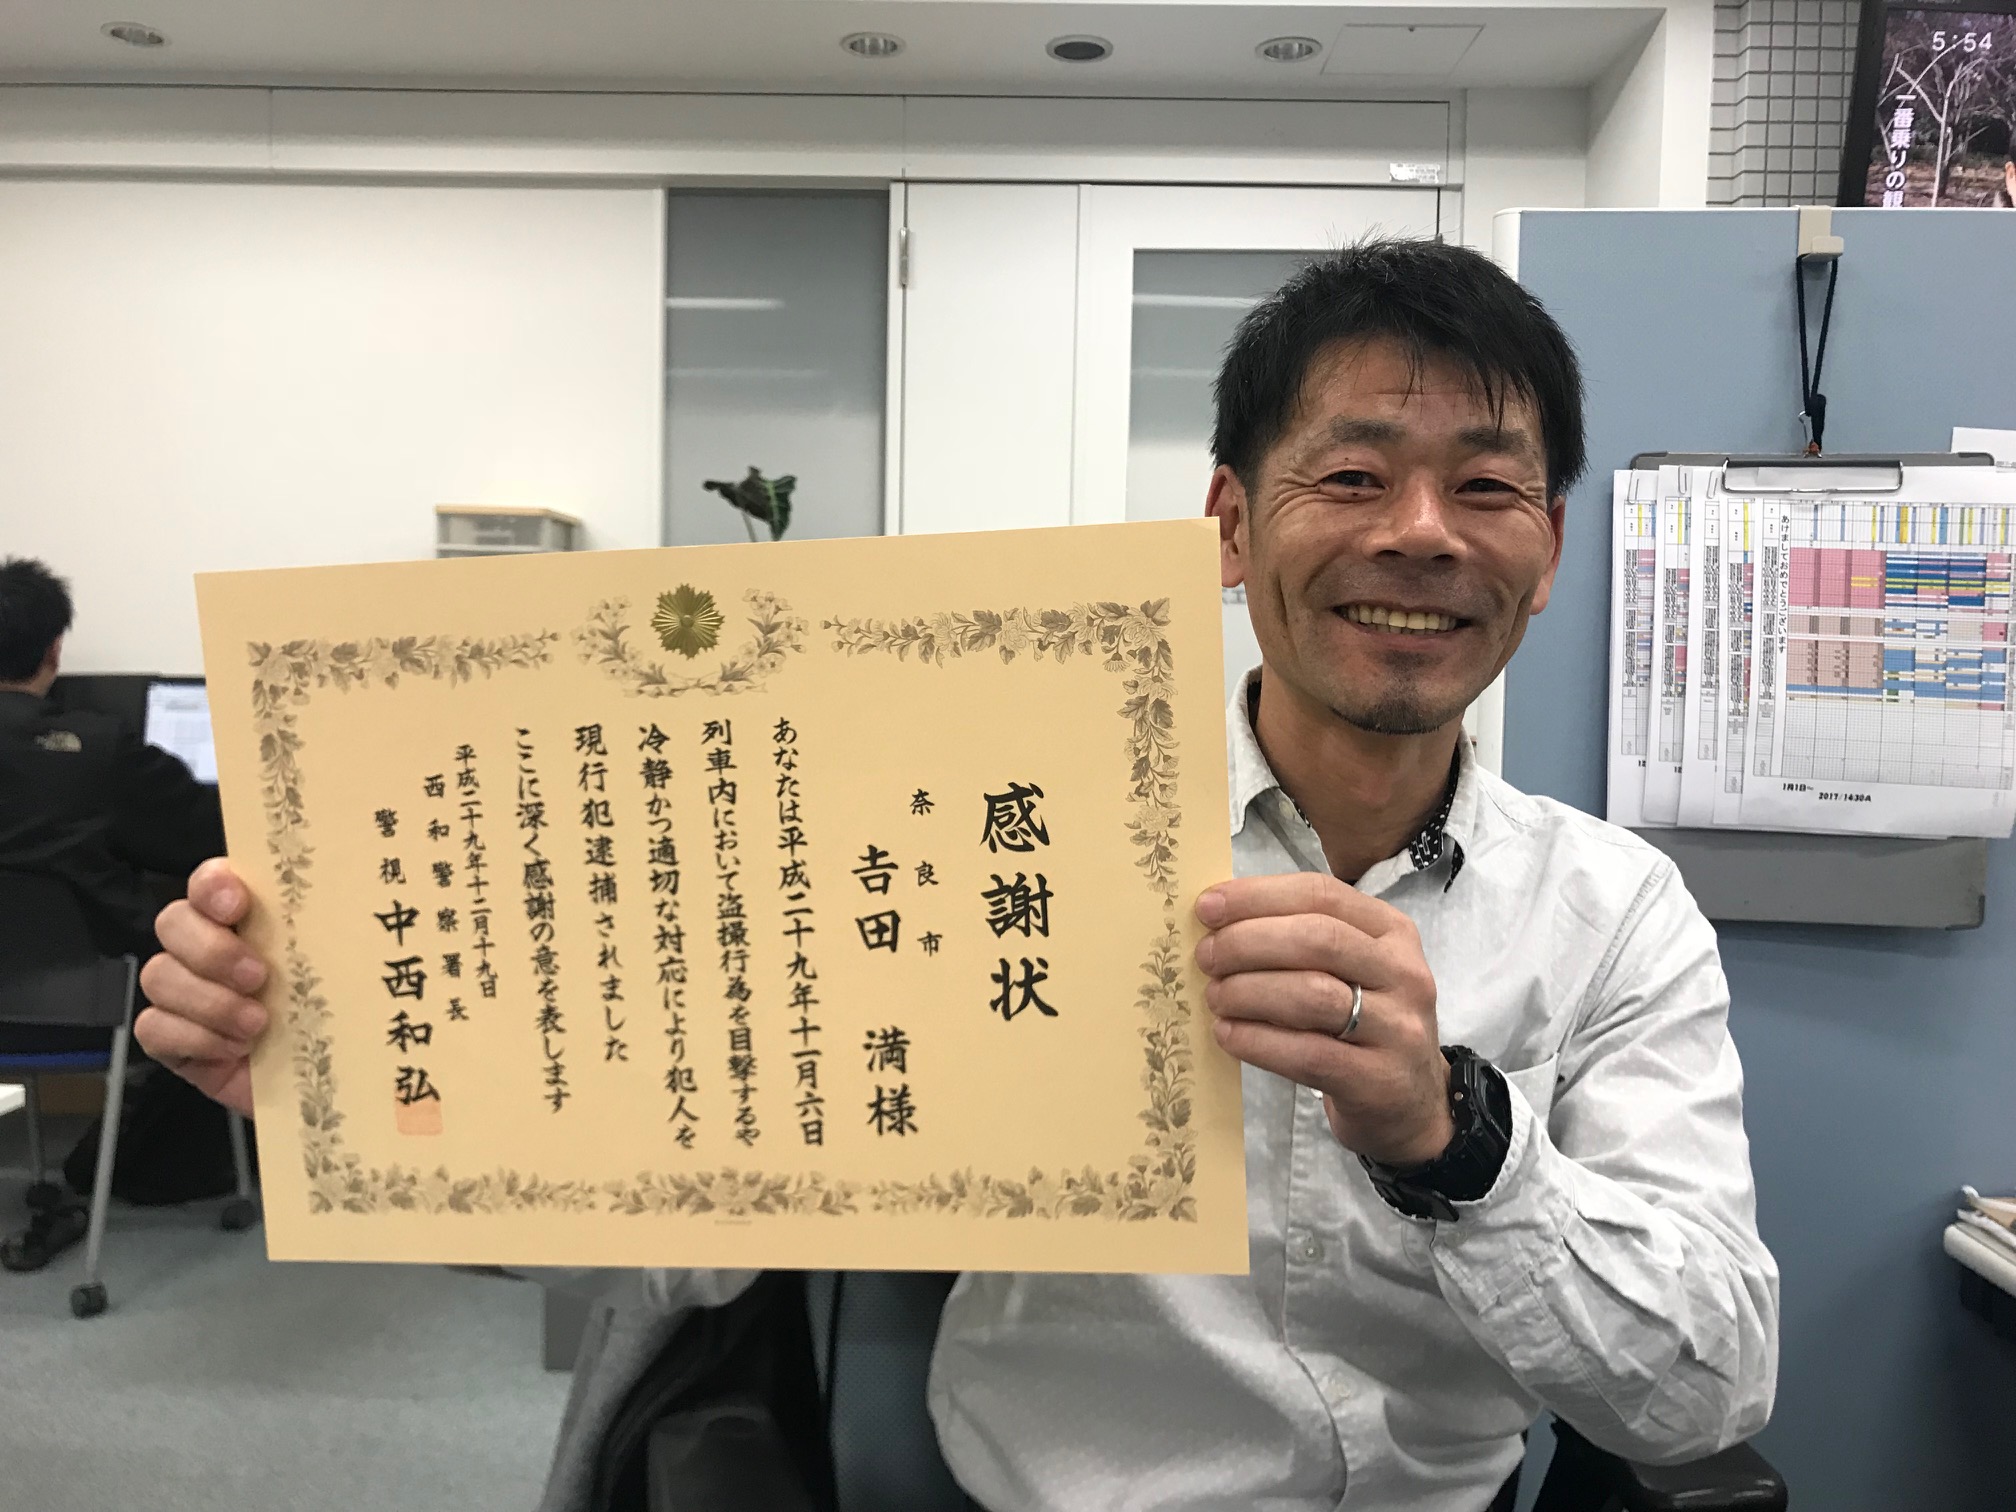 感謝状
奈良市
吉田 満様
あなたは平成二十九年十一月六日
列車内において盗撮行為を目撃するや
冷静かつ適切な対応により犯人を
現行犯逮捕されました
ここに深く感謝の意を表します
平成二十九年十二月十九日
西和警察署長
警視 中西和弘
5:54
一番乗りの観
あけましておめでとうございます
1月1日~
2017/1430A